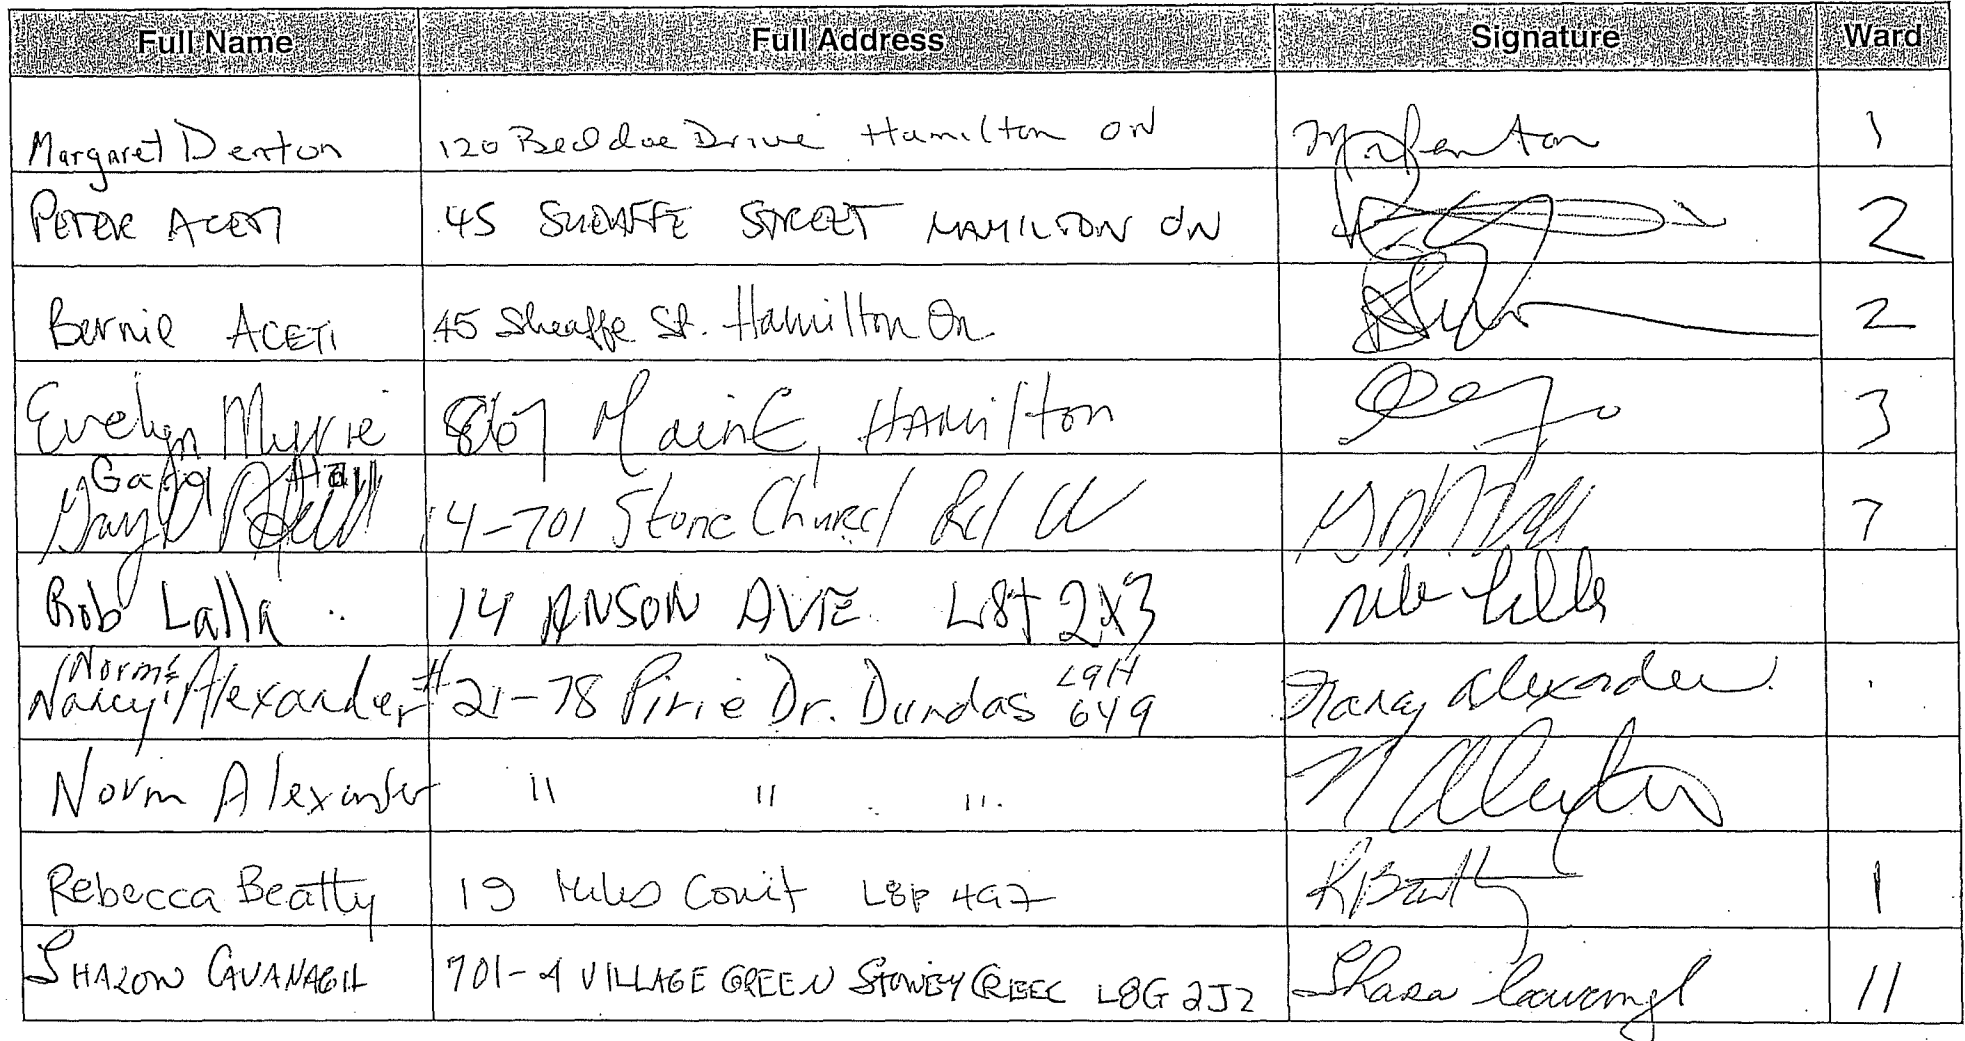 Full Name Full Address Signature Ward
Margaret Denton 120 Beddoe Drive Hamilton ON 1
PETER ACETI 45 SHEAFFE STREET HAMILTON ON 2
Bernie ACETI 45 Sheaffe St. Hamilton On 2
Evelyn Myrie 867 Main E, HAMilton 3
Hall
14-701 Stone Church Rd W 7
Rob Lalla 14 ANSON AVE L8T 2X3
Norm &
Nancy Alexander #21-78 Pirie Dr. Dundas L9H 6Y9 Nancy Alexander
Norm Alexander " " "
Rebecca Beatty 19 Court L8P 4G7 RBeatty 1
SHARON CAVANAGH 701-4 VILLAGE GREEN STONEY CREEK L8G 2J2 11